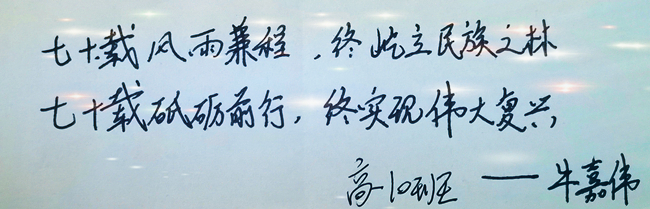 七十载风雨兼程，终屹立民族之林
七十载砥砺前行，终实现伟大复兴
高一10班——牛嘉伟